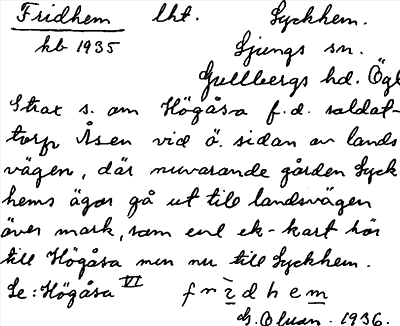 Fridhem lht. Lyckhem.
kb 1935 Ljungs sn.
Gullbergs hd. Ögl
Strax s. om Högåsa f.d. soldat-
torp Åsen vid ö. sidan av lands
vägen, där nuvarande gården Lyck
hems ägor gå ut till landsvägen
över mark, som enl ek-kart hör
till Högåsa men nu till Lyckhem.
Se: Högåsa VI fridhem
1936.